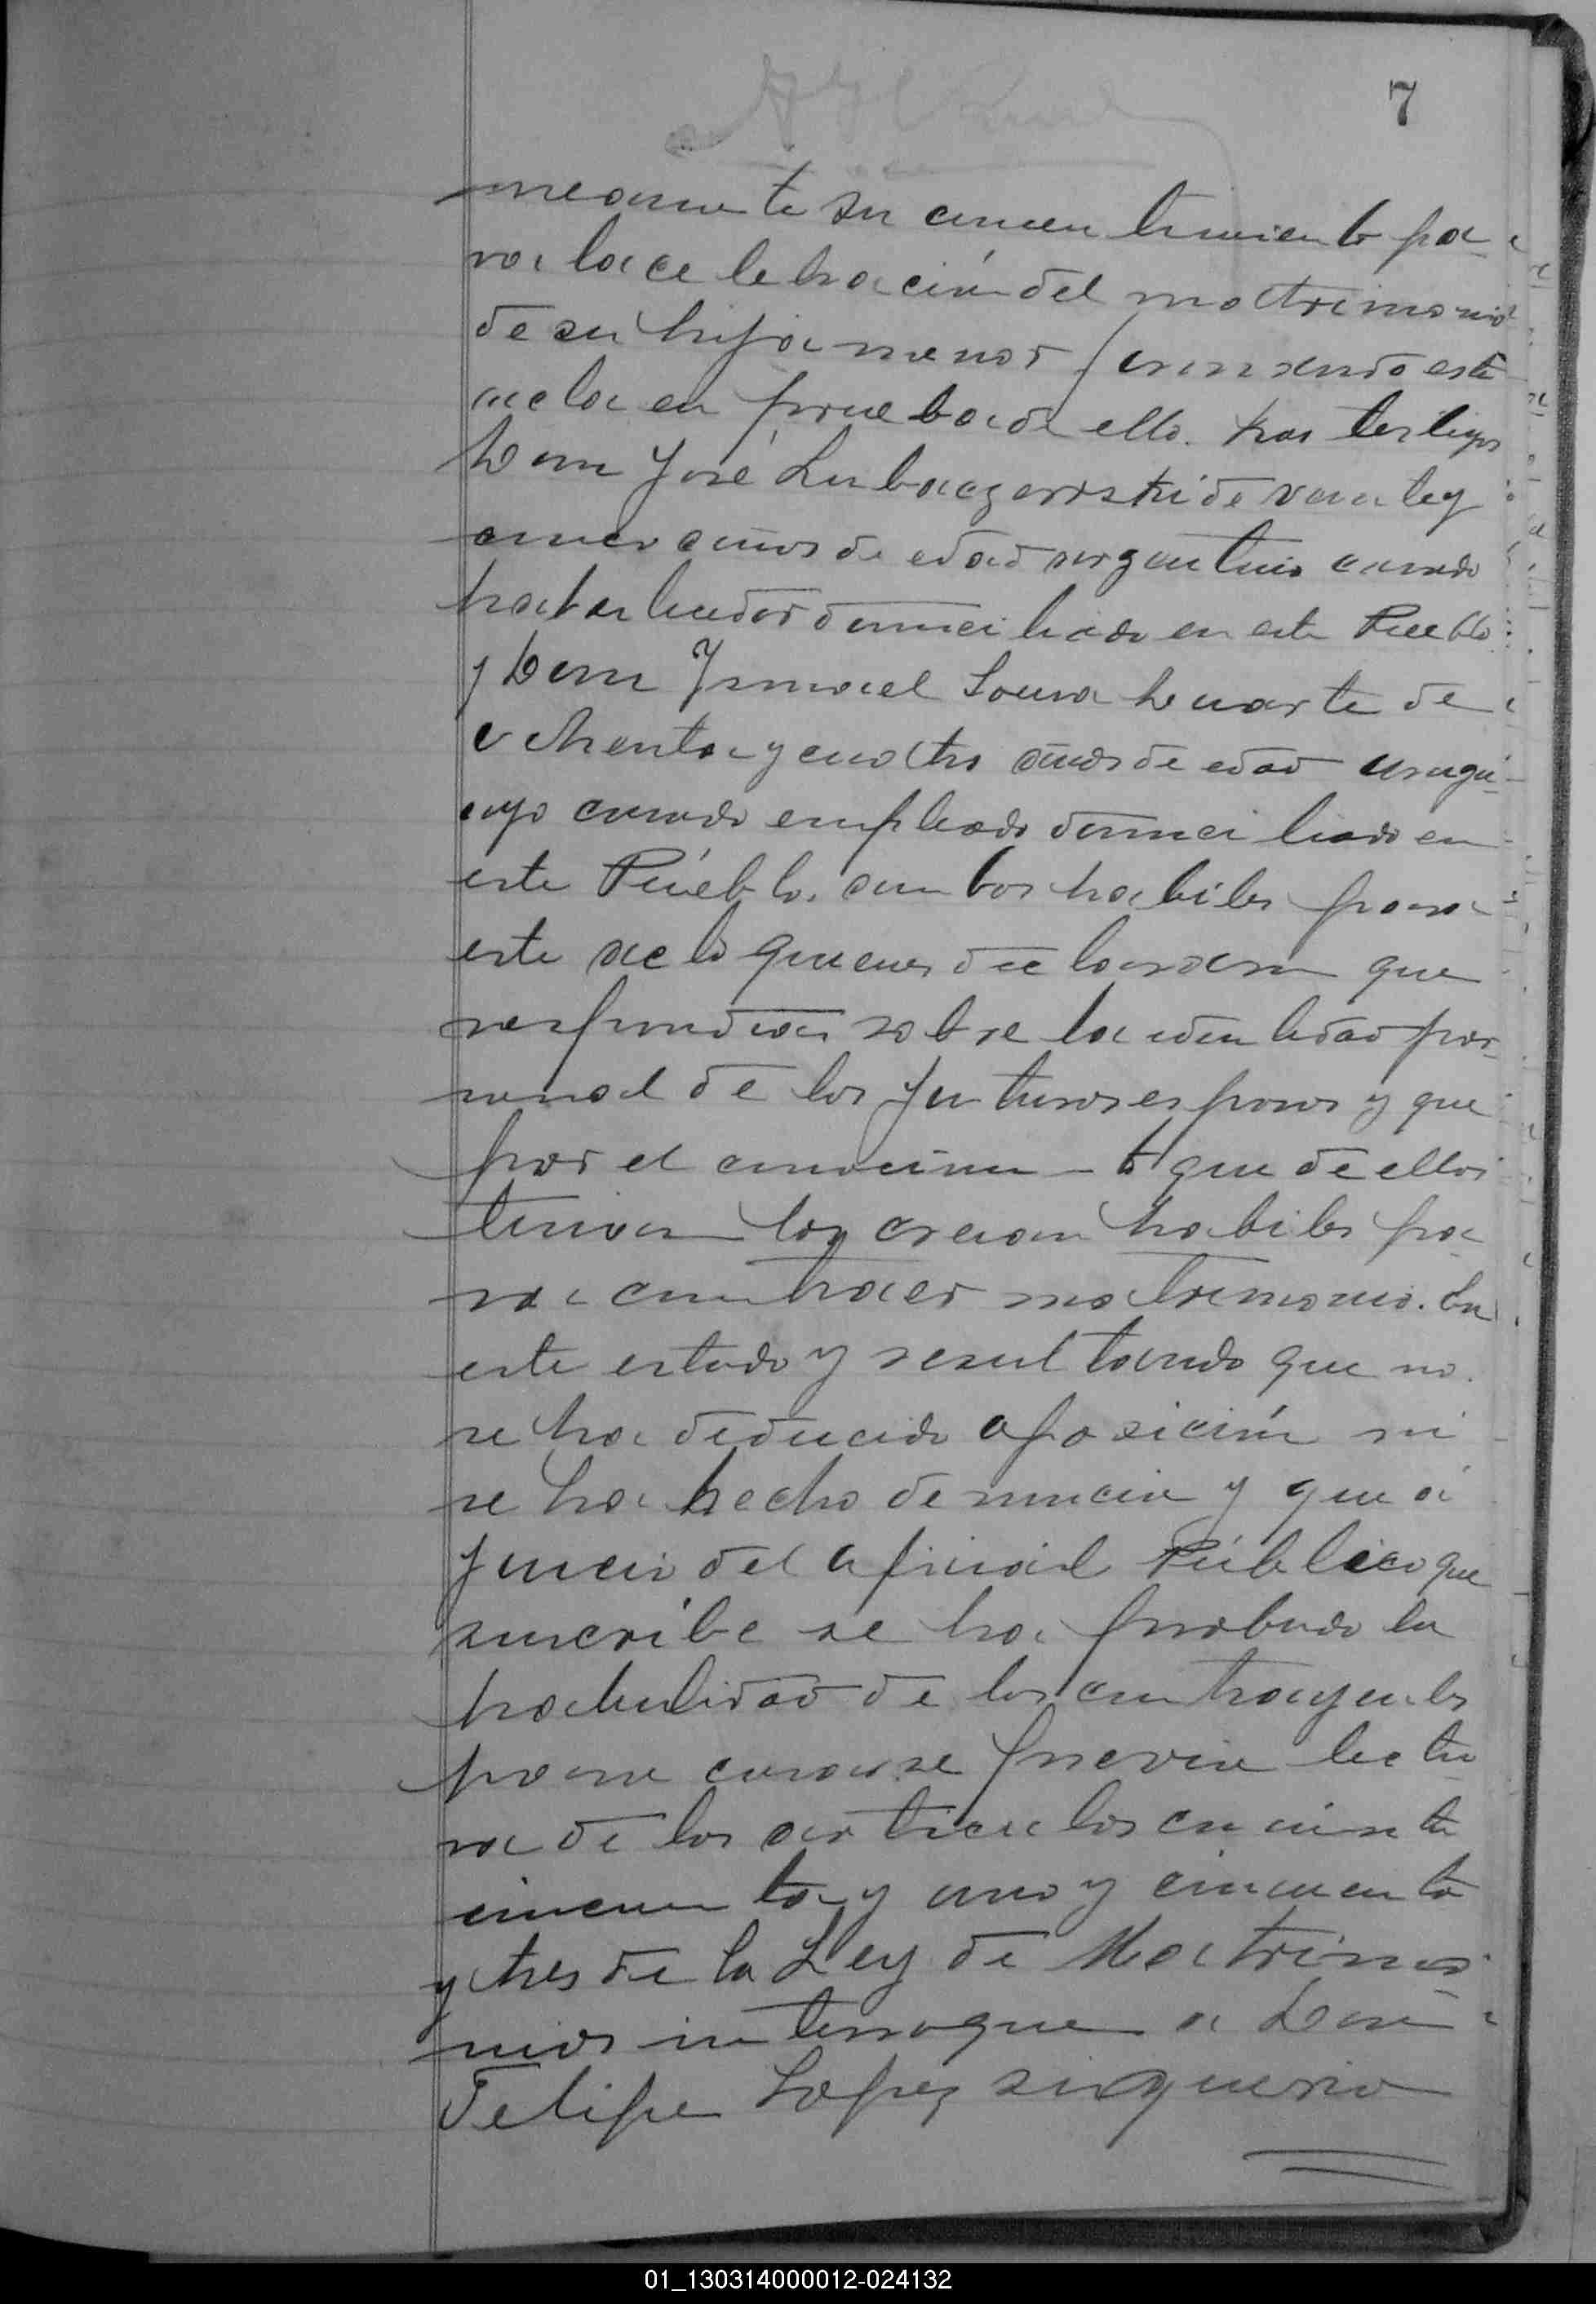 7
neamente su consentimiento pa-
ra la celebración del matrimonio
de su hija menor firmando este
acta en prueba de ello. Los testigos
Don José de veinte y
cinco años de edad argentino casado
trabajador domiciliado en este Pueblo
y Don Ismael Sousa Duarte de
ochenta y cuatro años de edad urugua-
yo casado empleado domiciliado en
este Pueblo, ambos habiles para
este acto quienes declararon que
respondian sobre la identidad per-
sonal de los futuros esposos y que
por el conocimiento que de ellos
tenian los creian habiles pa-
ra contraer matrimonio. En
este estado y resultando que no
se ha deducido oposición ni
se ha hecho denuncia y que á
juicio del oficial Público que
suscribe se ha probado la
habilidad de los contrayentes
para casarse previa lectu-
ra de los articulos cincuenta
cincuenta y uno y cincuenta
y tres de la Ley de Matrimo-
nios interrogue a Don
Felipe Lopez si queria
01_130314000012-024132